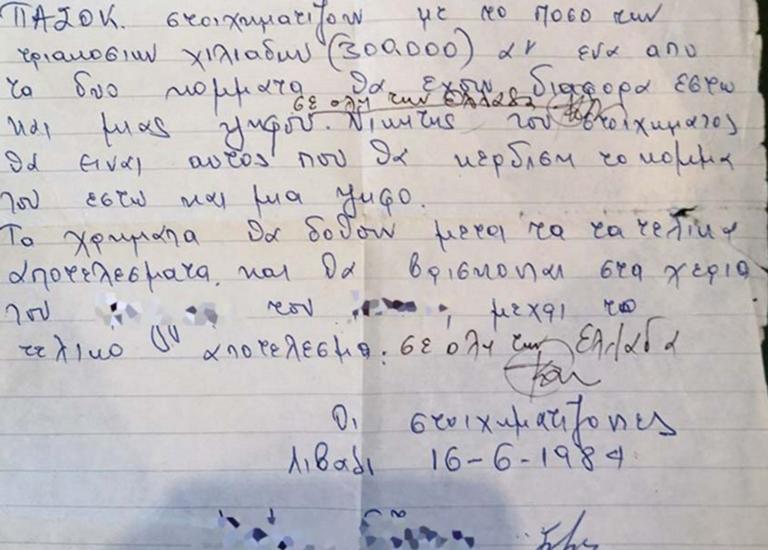 ΠΑΣΟΚ. στοιχηματιζουν με το ποσο των
τριακοσιων χιλιαδων (300.000) αν ενα απο
τα δυο κομματα θα εχουν διαφορα εστω
σε ολη την Ελλαδα
και μιας ψηφου. Νικητης του στοιχηματος
θα ειναι αυτος που θα κερδιση το κομμα
του εστω και μια ψηφο.
Τα χρηματα θα δοθουν μετα τα τα τελικα
αποτελεσματα. και θα βρισκονται στα χερια
του του , μεχρι το
τελικο αποτελεσμα. σε όλη την Ελλαδα
Οι στοιχηματιζοντες
Λιβαδι 16-6-1984